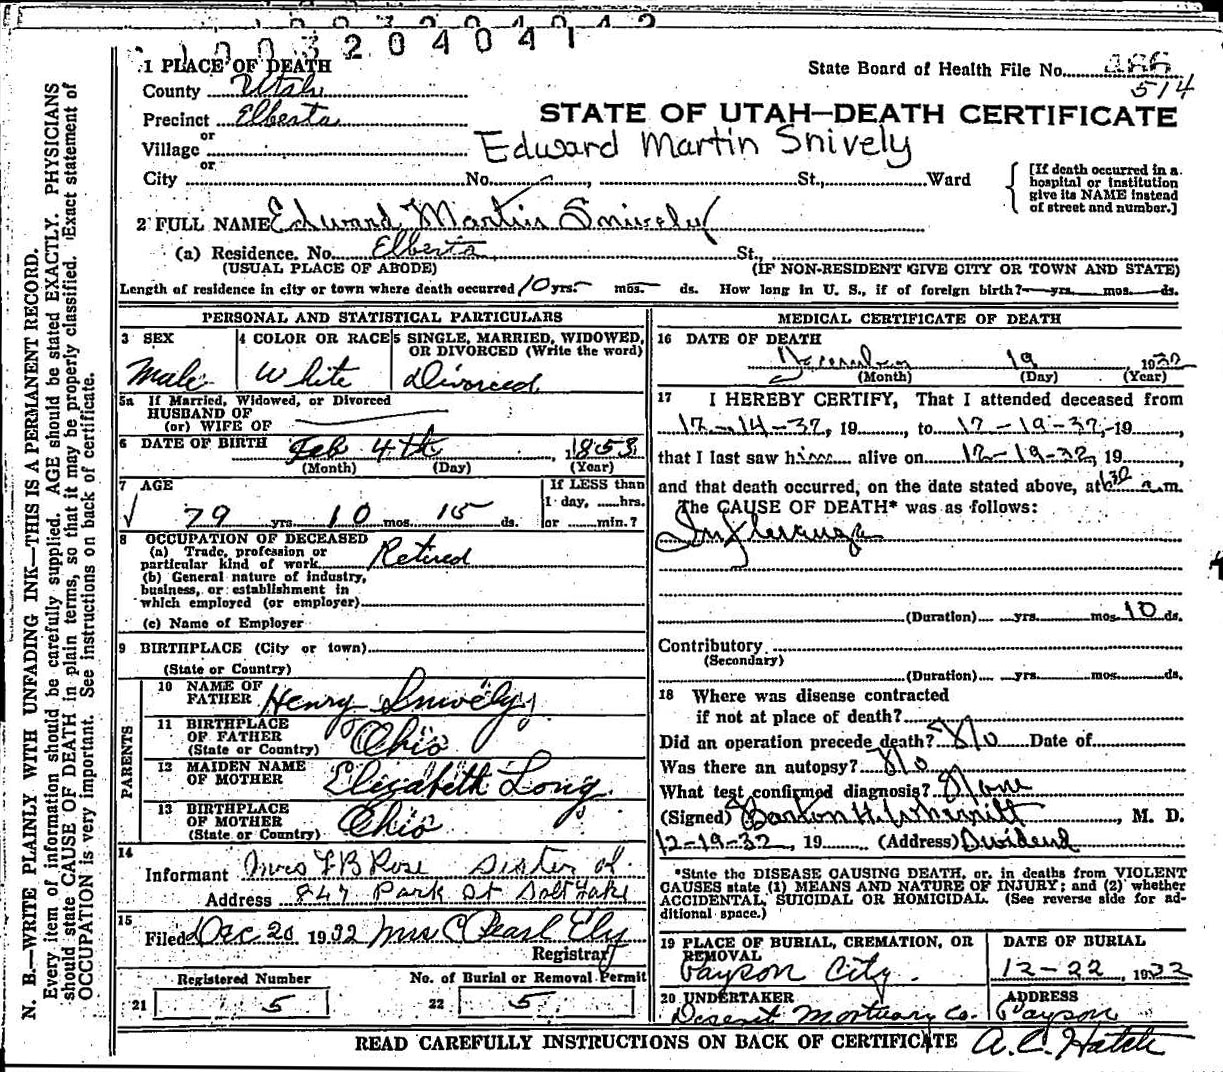 0 0 3 2 0 4 0 4 1
1 PLACE OF DEATH
County Utah
Precinct Elberta
or
Village
or
City No. , St., Ward
State Board of Health File No.
514
STATE OF UTAH—DEATH CERTIFICATE
Edward Martin Snively
[If death occurred in a hospital or institution give its NAME instead of street and number.]
2 FULL NAME Edward Martin Snively
(a) Residence. No. Elberta St.,
(USUAL PLACE OF ABODE) (IF NON-RESIDENT GIVE CITY OR TOWN AND STATE)
Length of residence in city or town where death occurred 10 yrs. mos. ds. How long in U. S., if of foreign birth? yrs. mos. ds.
N. B.—WRITE PLAINLY WITH UNFADING INK—THIS IS A PERMANENT RECORD.
Every item of information should be carefully supplied. AGE should be stated EXACTLY. PHYSICIANS
should state CAUSE OF DEATH in plain terms, so that it may be properly classified. Exact statement of
OCCUPATION is very important. See instructions on back of certificate.
PERSONAL AND STATISTICAL PARTICULARS
3 SEX
Male
4 COLOR OR RACE
White
5 SINGLE, MARRIED, WIDOWED,
OR DIVORCED (Write the word)
Divorced
5a If Married, Widowed, or Divorced
HUSBAND OF
(or) WIFE OF
6 DATE OF BIRTH Feb 4th , 1853
(Month) (Day) (Year)
7 AGE
79 yrs. 10 mos. 15 ds.
If LESS than
1 day, hrs.
or min.?
8 OCCUPATION OF DECEASED
(a) Trade, profession or
particular kind of work Retired
(b) General nature of industry,
business, or establishment in
which employed (or employer)
(c) Name of Employer
9 BIRTHPLACE (City or town)
(State or Country)
PARENTS
10 NAME OF
FATHER Henry Snively
11 BIRTHPLACE
OF FATHER
(State or Country) Ohio
12 MAIDEN NAME
OF MOTHER Elizabeth Long
13 BIRTHPLACE
OF MOTHER
(State or Country) Ohio
14
Informant Mrs F B Rose Sister of
Address 847 Park St Salt Lake
15
Filed Dec 20 1932 Mrs C Pearl Ely
Registrar
Registered Number
21 5
No. of Burial or Removal Permit
22 5
MEDICAL CERTIFICATE OF DEATH
16 DATE OF DEATH
December 19 1932
(Month) (Day) (Year)
17 I HEREBY CERTIFY, That I attended deceased from
12-14-32, 19 , to 12-19-32, 19 ,
that I last saw him alive on 12-19-32, 19 ,
and that death occurred, on the date stated above, at 630 a.m.
The CAUSE OF DEATH* was as follows:
Influenza
(Duration) yrs. mos. 10 ds.
Contributory
(Secondary)
(Duration) yrs. mos. ds.
18 Where was disease contracted
if not at place of death?
Did an operation precede death? No Date of
Was there an autopsy? No
What test confirmed diagnosis? None
(Signed) Barton H. , M. D.
12-19-32, 19 (Address) Dividend
*State the DISEASE CAUSING DEATH, or, in deaths from VIOLENT
CAUSES state (1) MEANS AND NATURE OF INJURY; and (2) whether
ACCIDENTAL, SUICIDAL OR HOMICIDAL. (See reverse side for ad-
ditional space.)
19 PLACE OF BURIAL, CREMATION, OR
REMOVAL
Payson City.
DATE OF BURIAL
12-22, 1932
20 UNDERTAKER
Deseret Mortuary Co.
ADDRESS
Payson
READ CAREFULLY INSTRUCTIONS ON BACK OF CERTIFICATE A. C. Hatch